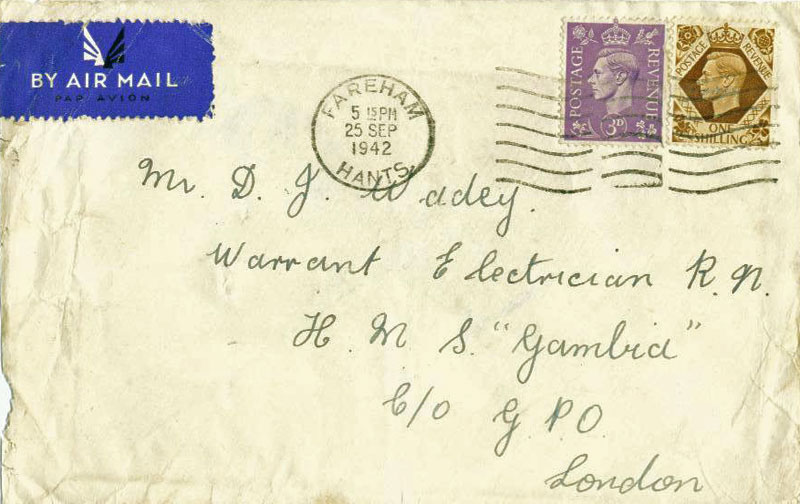 BY AIR MAIL
PAR AVION
FAREHAM
5 15 PM
25 SEP
1942
HANTS.
POSTAGE
REVENUE
3D
POSTAGE
REVENUE
ONE
SHILLING
Mr. D. J. Wadey.
Warrant Electrician R.N.
H. M. S. "Gambia"
C/o G.P.O.
London